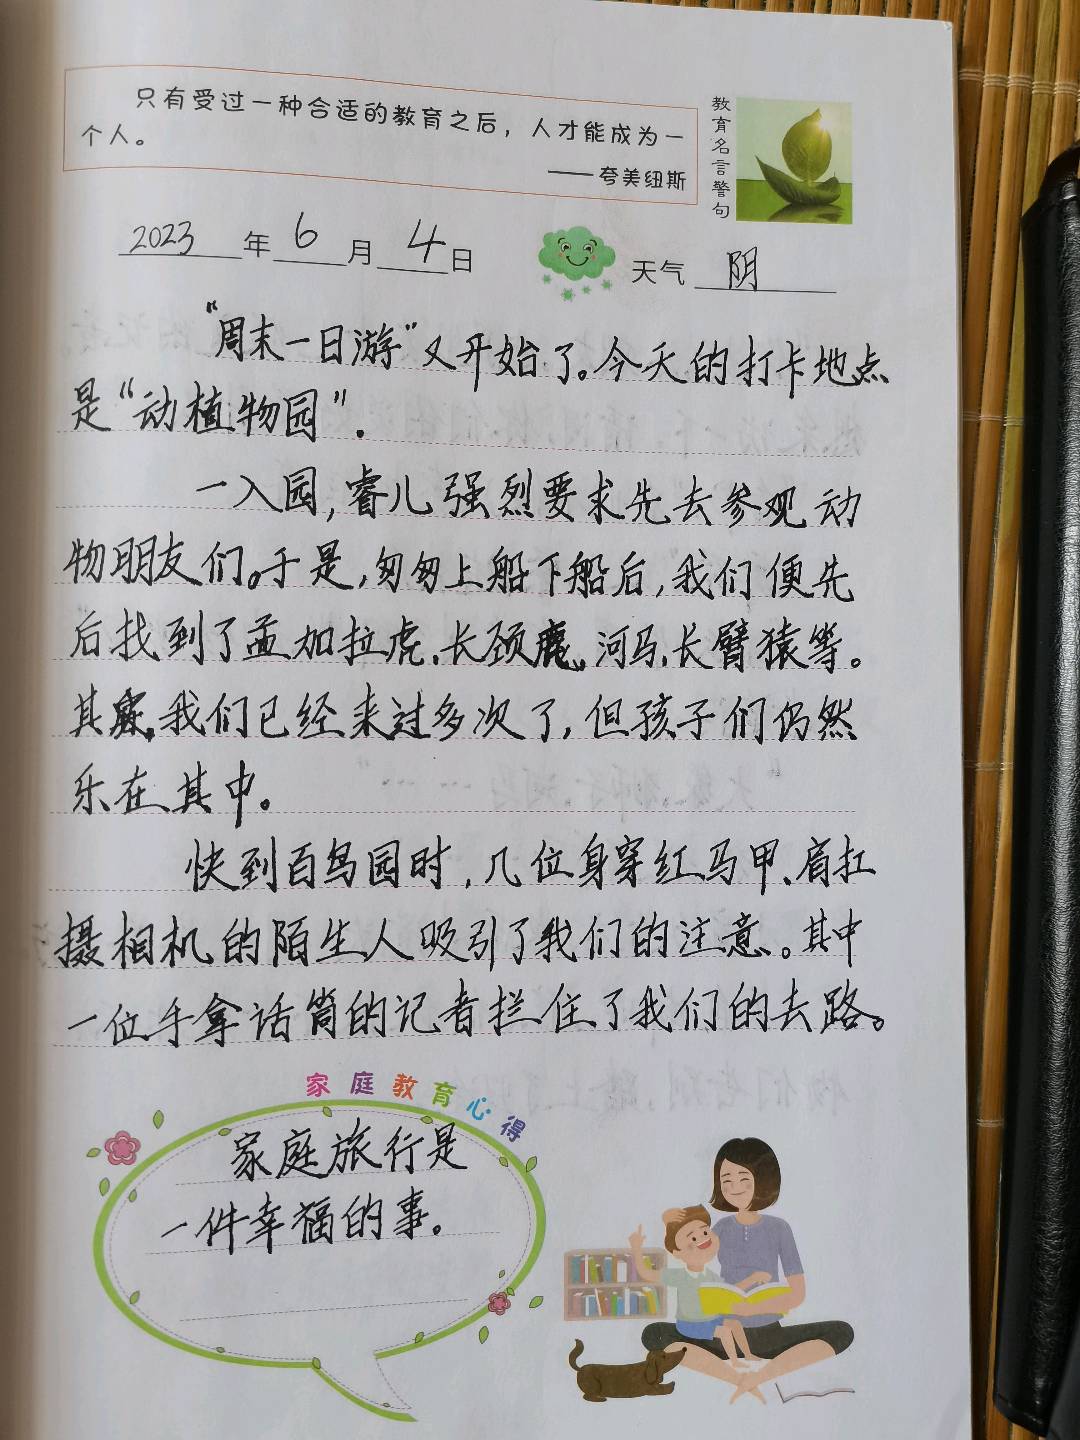 只有受过一种合适的教育之后，人才能成为一
个人。
——夸美纽斯
教育名言警句
2023年6月4日
天气 阴
“周末一日游”又开始了。今天的打卡地点
是“动植物园”.
一入园,睿儿强烈要求先去参观动
物朋友们。于是,匆匆上船下船后,我们便先
后找到了孟加拉虎、长颈鹿、河马、长臂猿等。
其实,我们已经来过多次了,但孩子们仍然
乐在其中。
快到百鸟园时,几位身穿红马甲、肩扛
摄相机的陌生人吸引了我们的注意。其中
一位手拿话筒的记者拦住了我们的去路。
家庭教育心得
家庭旅行是
一件幸福的事。